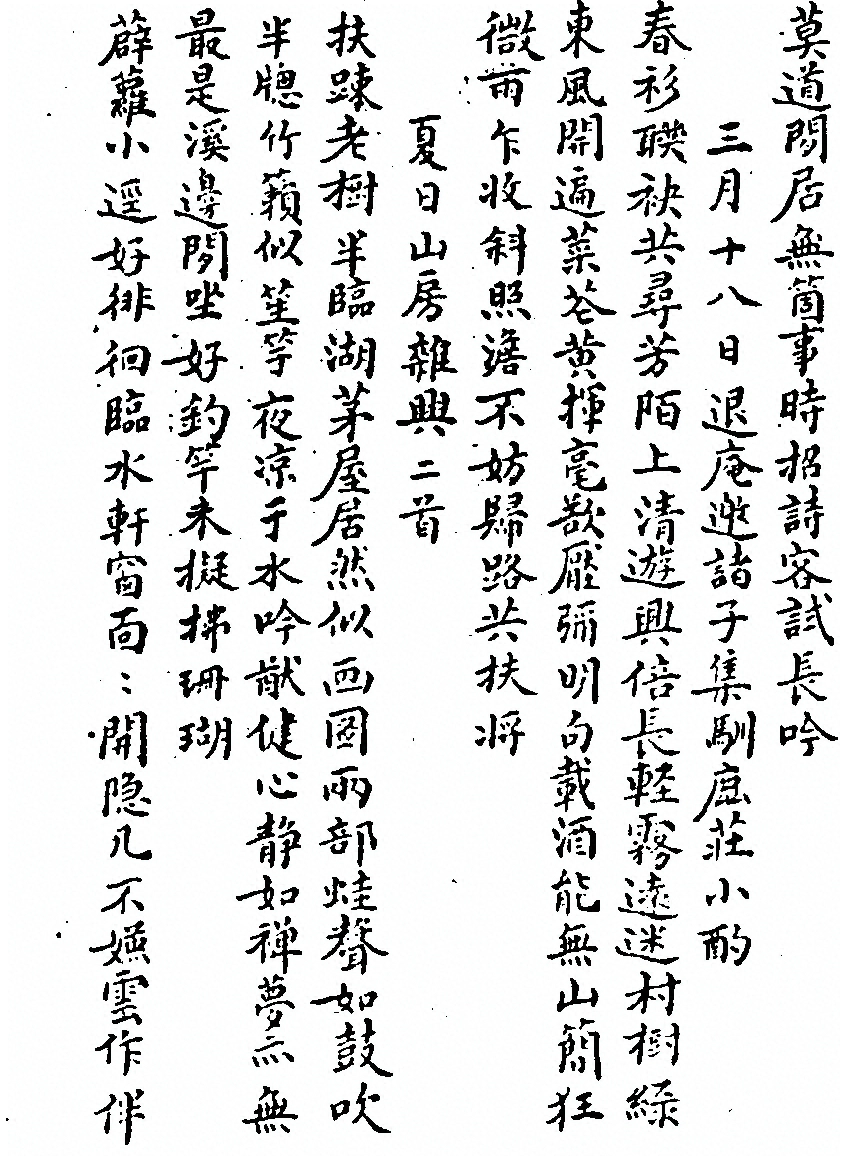 莫道閒居無箇事時招詩客試長吟
三月十八日退庵邀諸子集馴鹿莊小酌
春衫聯袂共尋芳陌上清遊興倍長輕霧遠迷村樹綠
東風開遍菜花黃揮毫欲壓彌明句載酒能無山簡狂
微雨乍收斜照澹不妨歸路共扶將
夏日山房雜興二首
扶踈老樹半臨湖茅屋居然似画圖兩部蛙聲如鼓吹
半牕竹籟似笙竽夜凉于水吟猷健心静如禅夢亦無
最是溪邊閒坐好釣竿未擬拂珊瑚
薜蘿小逕好徘徊臨水軒窗面〻開隐几不嫌雲作伴